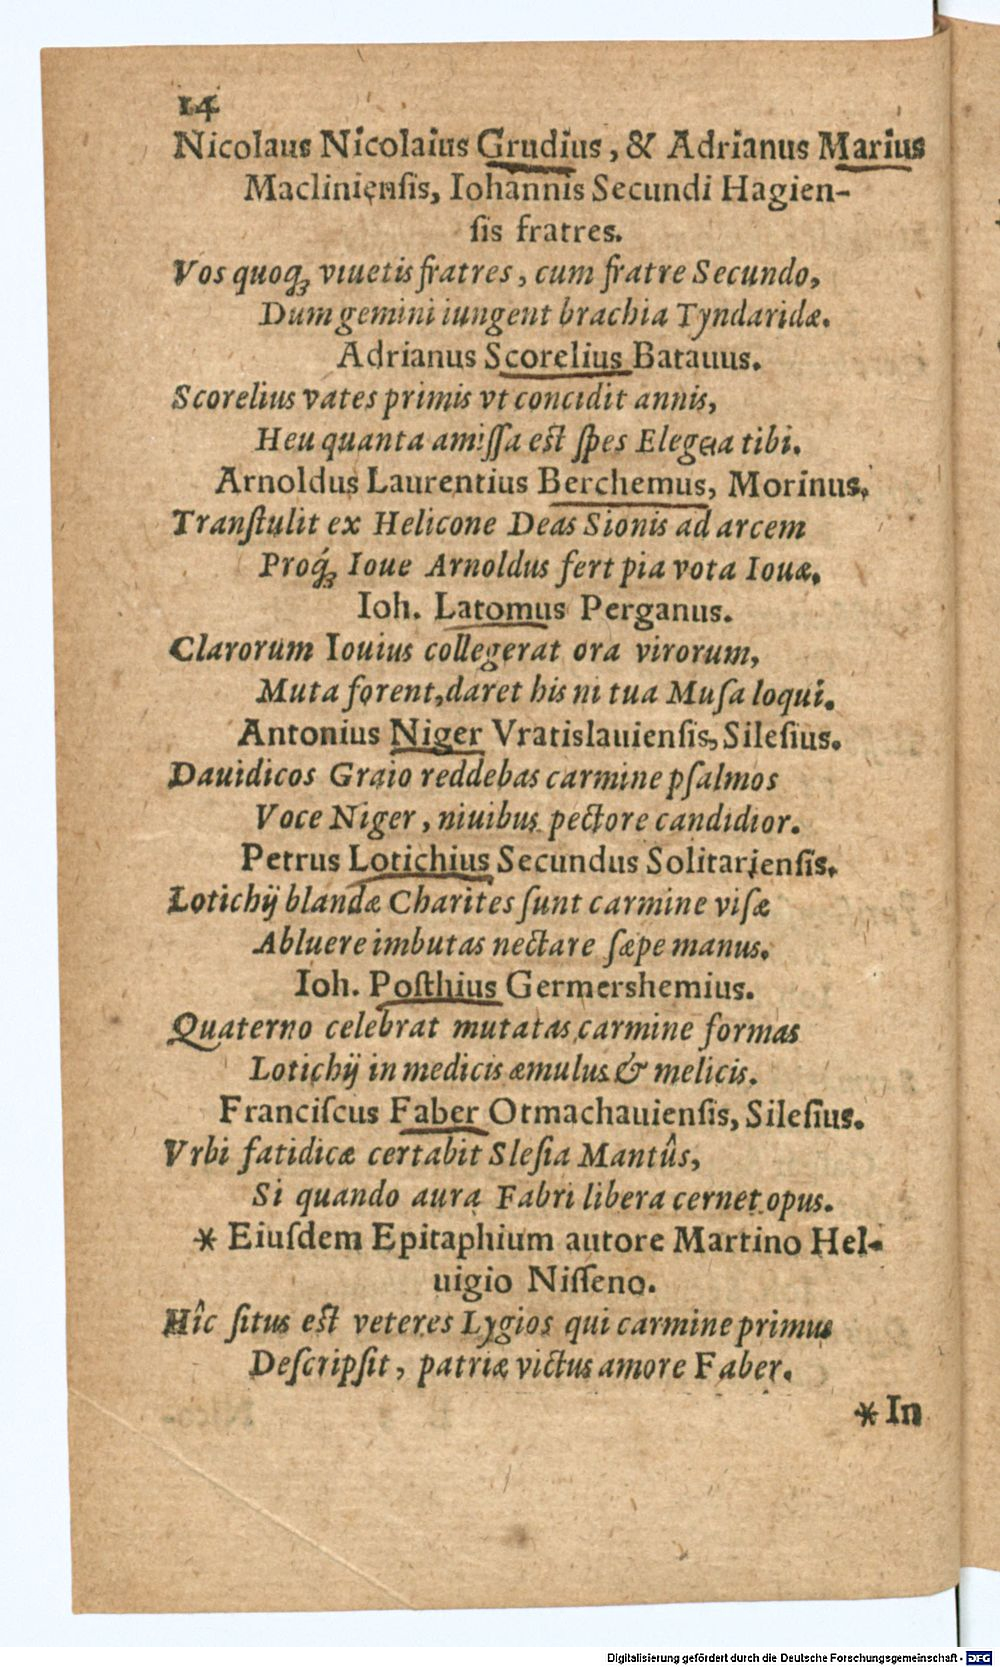 14
Nicolaus Nicolaius Grudius, & Adrianus Marius
Macliniensis, Iohannis Secundi Hagien-
ſis fratres.
Vos quoq; viuetis fratres, cum fratre Secundo,
Dum gemini iungent brachia Tyndaridæ.
Adrianus Scorelius Batauus.
Scorelius vates primis vt concidit annis,
Heu quanta amiſſa est ſpes Elegeia tibi.
Arnoldus Laurentius Berchemus, Morinus.
Tranſtulit ex Helicone Deas Sionis ad arcem
Proq́; Ioue Arnoldus fert pia vota Iouæ.
Ioh. Latomus Perganus.
Clarorum Iouius collegerat ora virorum,
Muta forent, daret his ni tua Muſa loqui.
Antonius Niger Vratislauienſis, Sileſius.
Dauidicos Graio reddebas carmine pſalmos
Voce Niger, niuibus pectore candidior.
Petrus Lotichius Secundus Solitarienſis.
Lotichij blandæ Charites ſunt carmine viſæ
Abluere imbutas nectare ſæpe manus.
Ioh. Poſthius Germershemius.
Quaterno celebrat mutatas carmine formas
Lotichij in medicis æmulus & melicis.
Franciſcus Faber Otmachauienſis, Sileſius.
Vrbi fatidicæ certabit Sleſia Mantûs,
Si quando aura Fabri libera cernet opus.
* Eiuſdem Epitaphium autore Martino Hel-
uigio Niſſeno.
Hîc ſitus est veteres Lygios qui carmine primus
Deſcripſit, patriæ victus amore Faber.
* In
Digitalisierung gefördert durch die Deutsche Forschungsgemeinschaft - DFG